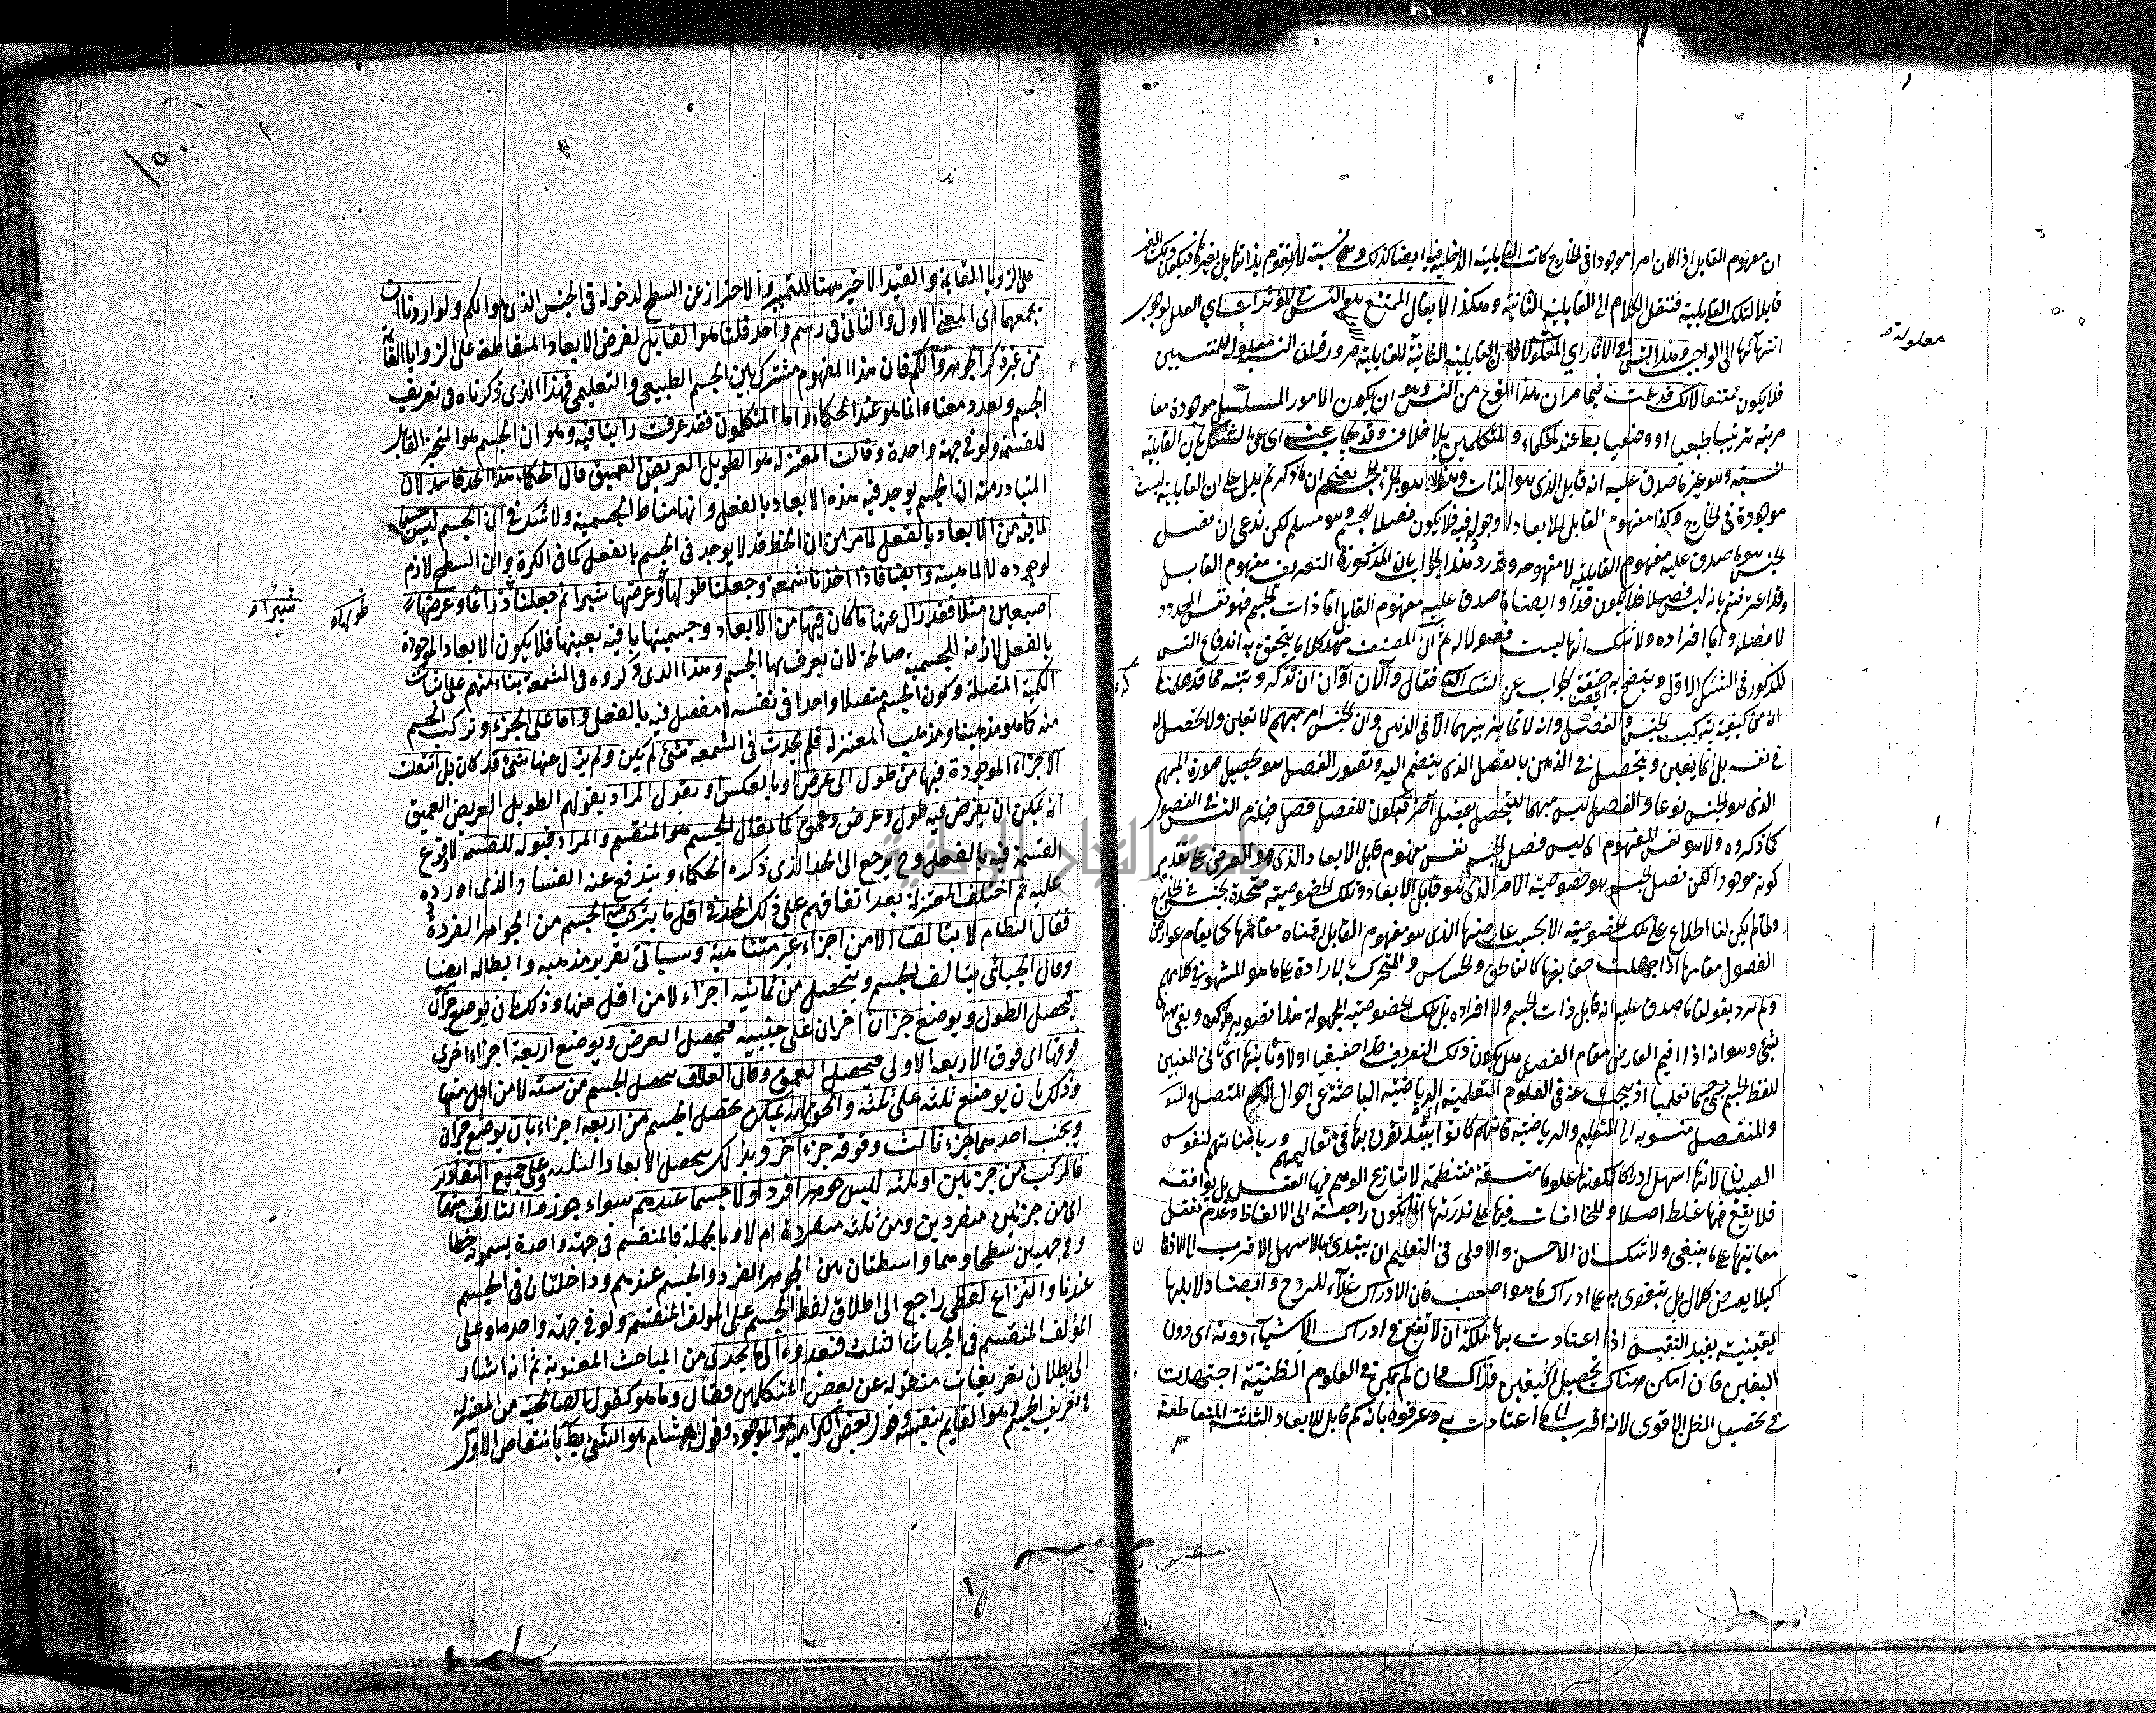 ان مفهوم القابل اذا كان امرا موجودا في الخارج كانت القابلية الداخلة فيه ايضا كذلك وهي نسبة لا تقوم بذاتها بل بغيرها فيكون ذلك الغير
قابلا لتلك القابلية فننقل الكلام الى القابلية الثانية وهكذا لا يقال الممتنع هو التس في المؤثرات اي العلل لوجوب
انتهائها الى الواجب وهذا التس في الآثار اي المعلولات لان القابلية الثانية للقابلية ضرورة ان النسبة معلولة للمنتسبين
معلولة
فلا يكون ممتنعا لانك قد علمت فيما مر ان هذا النوع من التس وهو ان يكون الامور المسلسل موجودة معا
مرتبة ترتيبا طبيعيا او وضعيا بط عند الحكماء والمتكلمين بلا خلاف وقد يجاب عنه اي عن الشك بان القابلية
نسبة وهو غير ما صدق عليه انه قابل الذي هو الذات وهذا هو الجزء للجسم يعني ان ما ذكر تم يدل على ان القابلية ليست
موجودة في الخارج وكذا مفهوم القابل للابعاد لا وجود له فيه فلا يكون فصلا للجسم وهو مسلم لكن ندعي ان فصل
الجنس هو ما صدق عليه مفهوم القابلية لا مفهومه وقد رد هذا الجواب بان المذكور في التعريف مفهوم القابل
وقد اعترفتم بانه ليس فصلا فلا يكون حدا وايضا ما صدق عليه مفهوم القابل اما ذات الجسم فهو نفس المحدود
لا فصله واما افراده ولا شك انها ليست فصولا له ثم ان المصنف مهد كلاما يتحقق به اندفاع التس
المذكور في الشك الاول ويتضح به حقيقة الجواب عن الشك الثاني فقال والآن اوان ان تذكر وتنبه مما قد علمتنا
ان من كيفية تركيب الجنس والفصل وانه لا تمايز بينهما الا في الذهن وان الجنس امر مبهم لا تعين ولا تحصل له
في نفسه بل انما يتعين ويتحصل في الذهن بالفصل الذي ينضم اليه وتصور الفصل هو تحصيل صورة المبهم
الذي هو الجنس نوعا والفصل ليس مبهما ليتحصل بفصل آخر فيكون للفصل فصل فيلزم التس في الفصول
كما ذكروه ولا هو نفس المفهوم اي ليس فصل الجسم نفس مفهوم قابل الابعاد الذي هو العرض على تقدير
كونه موجودا لكن فصل الجسم هو خصوصية الامر الذي هو قابل الابعاد وتلك الخصوصية متحدة بجنس في الخارج
ولما لم يكن لنا اطلاع على تلك الخصوصية الا بحسب عارضها الذي هو مفهوم القابل اقمناه مقامها كما يقام عوارض
الفصول مقامها اذا جهلت حقايقها كالناطق والحساس والمتحرك بالارادة على ما هو المشهور في كلامهم
ولم نرد بقولنا ما صدق عليه انه قابل ذات الجسم ولا افراده بل تلك الخصوصية المجهولة هذا تصوير ما ذكره وبقي ههنا
شيء وهو انه اذا اقيم العارض مقام الفصل هل يكون ذلك التعريف حدا حقيقيا اولا وثانيها اي ثاني المعنيين
للفظ الجسم يسمى جسما تعليميا اذ يبحث عنه في العلوم التعليمية الرياضية الباحثة عن احوال الكم المتصل والمنفصل
والمنفصل منسوبة الى التعليم والرياضة فانهم كانوا يبتدؤون بها في تعاليمهم ورياضاتهم لنفوس
الصبيان لانها اسهل ادراكا لكونها علوما متسقة منتظمة لا ينازع الوهم فيها العقل بل يوافقه
فلا يقع فيها غلط اصلا والمخالفات فيها على ندرتها انما يكون راجعة الى الالفاظ وعدم تعقل
معانيها على ما ينبغي ولا شك ان الاحسن والاولى في التعليم ان يبتدئ بالاسهل الاقرب الى الاذهان
كيلا يعرض كلال بل يتقوى به على ادراك ما هو اصعب فان الادراك غذاء للروح وايضا دلايلها
يقينية يفيد النفس اذا اعتادت بها ملكة ان لا تقنع في ادراك الاشياء دونه اي دون
اليقين فان امكن هناك تحصيل اليقين فذاك وان لم يمكن في العلوم الظنية اجتهدت
في تحصيل الظن الاقوى لانه اقرب الى ما اعتادت به وعرفوه بانه كم قابل للابعاد الثلثة المتقاطعة
١٥٠
على الزوايا القائمة والقيد الاخير ههنا للتمييز والاحتراز عن السطح لدخوله في الجنس الذي هو الكم ولو اردنا ان
نجمعهما اي المعنى الاول والثاني في رسم واحد قلنا هو القابل لفرض الابعاد المتقاطعة على الزوايا القائمة
من غير ذكر الجوهر والكم فان هذا المفهوم مشترك بين الجسم الطبيعي والتعليمي فهذا الذي ذكرناه في تعريف
الجسم وتعدد معناه انما هو عند الحكماء واما المتكلمون فقد عرفت راينا فيه وهو ان الجسم هو المتحيز القابل
للقسمة ولو في جهة واحدة وقالت المعتزلة هو الطويل العريض العميق قال الحكماء هذا الحد فاسد لان
المتبادر منه ان الجسم يوجد فيه هذه الابعاد بالفعل وانها مناط الجسمية ولا شك في ان الجسم ليس جسما
لما فيه من الابعاد بالفعل لما مر من ان الخط قد لا يوجد في الجسم بالفعل كما في الكرة وان السطح لازم
لوجوده لا لماهيته وايضا فاذا اخذنا شمعة وجعلنا طولها وعرضها شبرا ثم جعلنا ذراعا وعرضها
طولها
شبرا
اصبعين مثلا فقد زال عنها ما كان فيها من الابعاد وجسميتها باقية بعينها فلا يكون الابعاد الموجودة
بالفعل لازمة للجسمية صالحة لان يعرف بها الجسم وهذا الذي ذكروه في الشمعة بناء منهم على اثبات
الكمية المتصلة وكون الجسم متصلا واحدا في نفسه لا مفصل فيه بالفعل واما على الجزء وتركب الجسم
منه كما هو مذهبنا ومذهب المعتزلة فلم يحدث في الشمعة شيء لم يكن ولم يزل عنها شيء قد كان بل انتقلت
الاجزاء الموجودة فيها من طول الى عرض او بالعكس او نقول المراد بقولهم الطويل العريض العميق
انه يمكن ان يفرض فيه طول وعرض وعمق كما يقال الجسم هو المنقسم والمراد قبوله للقسمة لا وقوع
القسمة فيه بالفعل وح يرجع الى الحد الذي ذكره الحكماء ويندفع عنه الفساد الذي اوردوه
عليه ثم اختلف المعتزلة بعد اتفاقهم على ذلك الحد في اقل ما يتركب منه الجسم من الجواهر الفردة
فقال النظام لا يتالف الا من اجزاء غير متناهية وسياتي تقرير مذهبه وابطاله ايضا
وقال الجبائي يتالف الجسم ويتحصل من ثمانية اجزاء لا من اقل منها وذلك بان يوضع جزآن
فيحصل الطول ويوضع جزآن اخران على جنبيه فيحصل العرض ويوضع اربعة اجزاء اخرى
فوقها اي فوق الاربعة الاولى فيحصل العمق وقال العلاف يحصل الجسم من ستة لا من اقل منها
وذلك بان يوضع ثلثة على ثلثة والحق انه يمكن تحصل الجسم من اربعة اجزاء بان يوضع جزآن
ويجنب احدهما جزء ثالث وفوقه جزء آخر وبذلك يحصل الابعاد الثلثة وعلى جميع التقادير
فالمركب من جزءين او ثلثة ليس جوهرا فردا ولا جسما عندهم سواء جوزوا التالف منهما
اي من جزئين منفردين ومن ثلثة منفردة ام لا وبالجملة فالمنقسم في جهة واحدة يسمونه خطا
وفي جهتين سطحا وهما واسطتان بين الجوهر الفرد والجسم عندهم وداخلتان في الجسم
عندنا والنزاع لفظي راجع الى اطلاق لفظ الجسم على المولف المنقسم ولو في جهة واحدة او على
المؤلف المنقسم في الجهات الثلث فتعدوه الى ما يجدي من المباحث المعنوية ثم انه اشار
الى بطلان تعريفات منقولة عن بعض المتكلمين فقال وما هو كقول الصالحية من المعتزلة
في تعريف الجسم هو القايم بنفسه وقول بعض الكرامية هو الموجود وقول هشام هو الشيء بط بانتقاض الاول